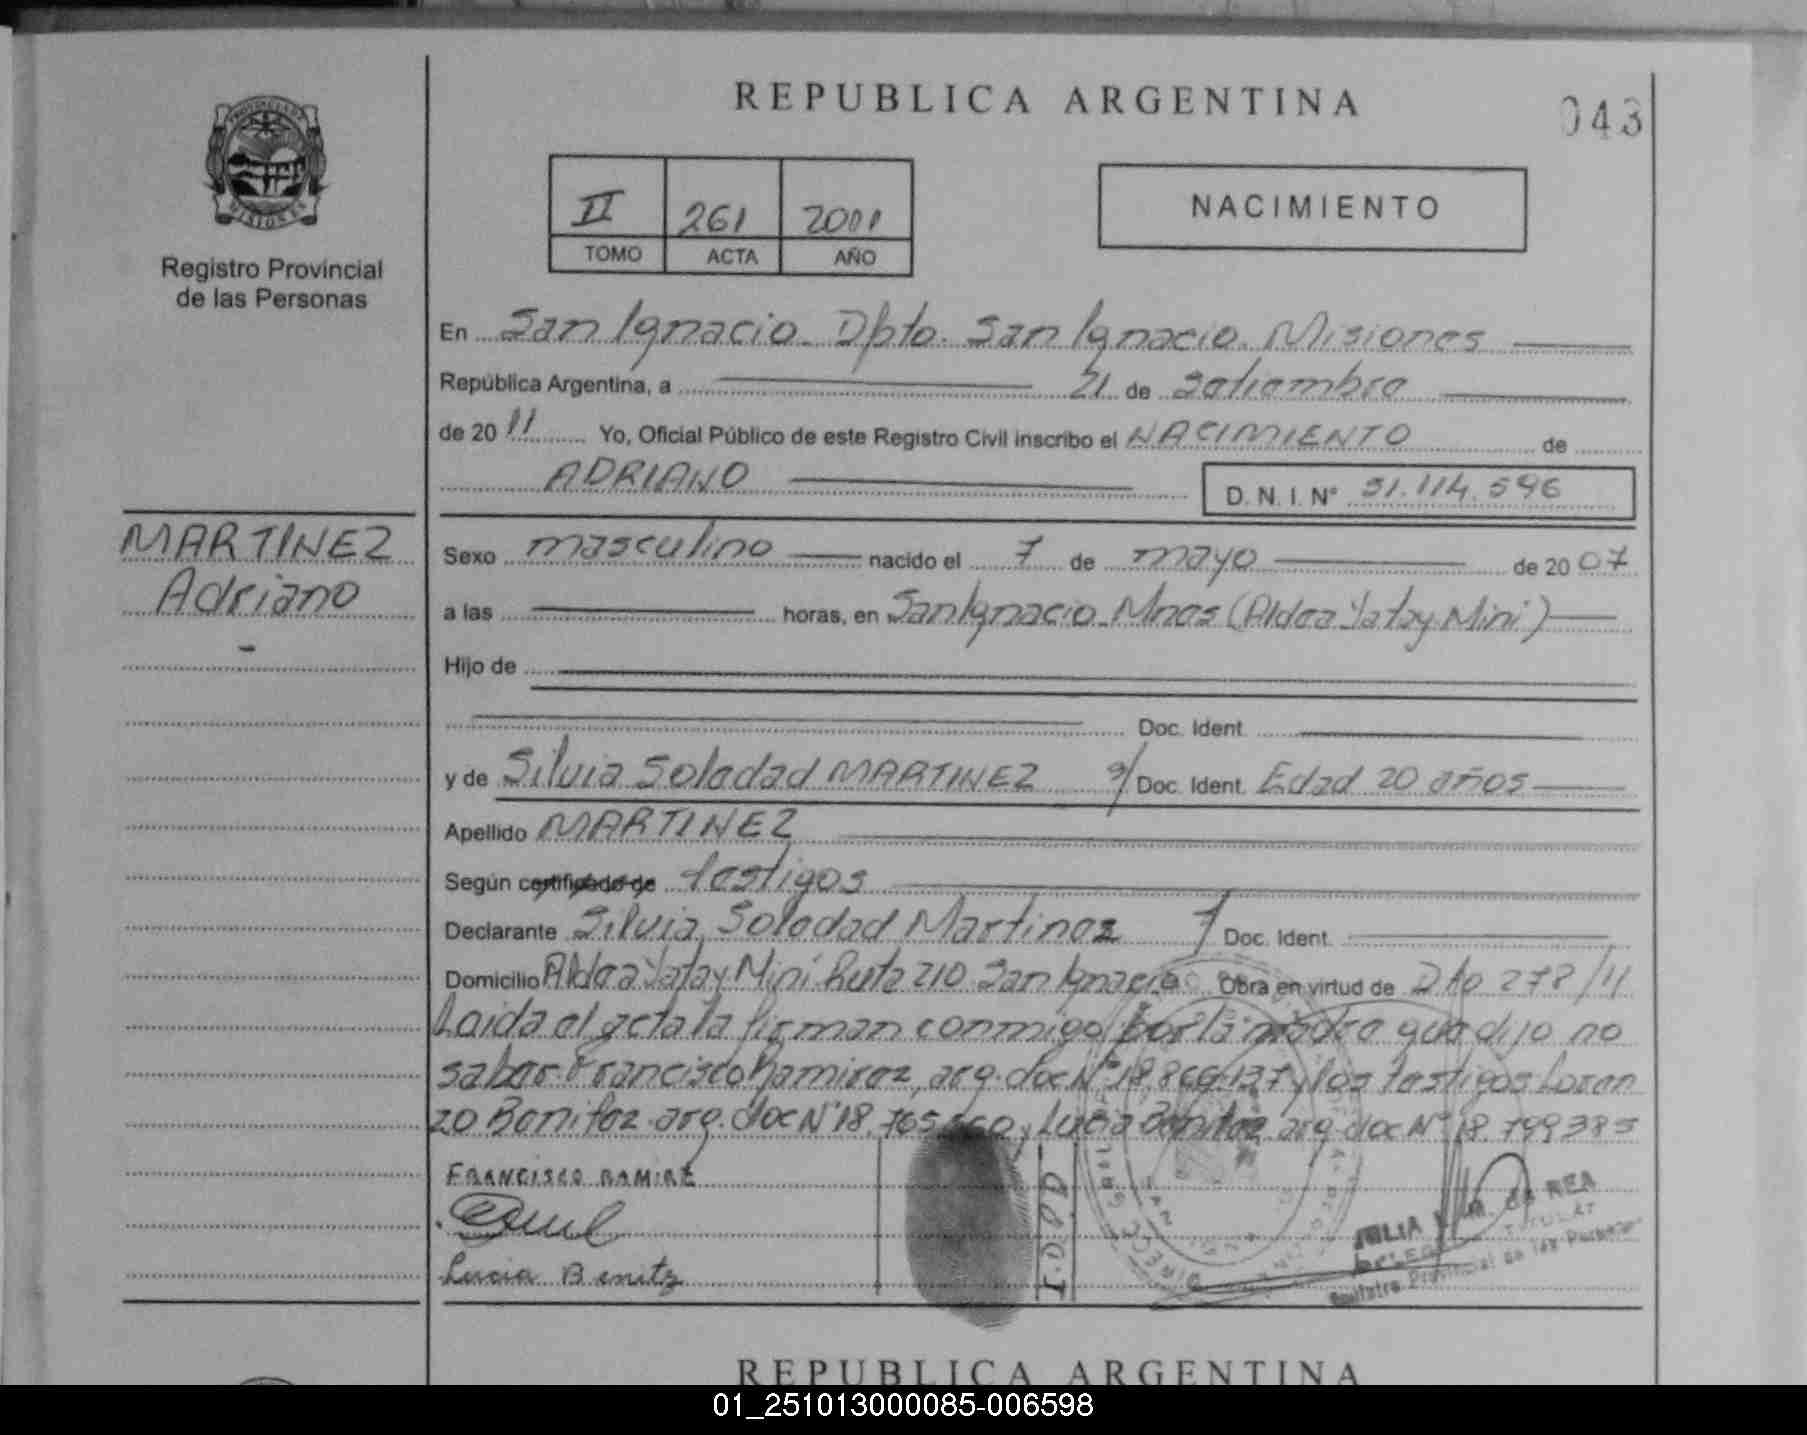 REPUBLICA ARGENTINA
043
PROVINCIA DE
MISIONES
Registro Provincial
de las Personas
II 261 2001
TOMO ACTA AÑO
NACIMIENTO
En San Ignacio. Dpto. San Ignacio. Misiones
República Argentina, a 21 de Setiembre
de 2011 Yo, Oficial Público de este Registro Civil inscribo el NACIMIENTO de
ADRIANO D. N. I. N° 51.114.596
MARTINEZ
Adriano
-
Sexo masculino nacido el 7 de mayo de 2007
a las horas, en San Ignacio. Mnes (Aldea Yatay Mini)
Hijo de
Doc. Ident.
y de Silvia Soledad MARTINEZ Doc. Ident. Edad 20 años
Apellido MARTINEZ
Según certificado de testigos
Declarante Silvia Soledad Martinez Doc. Ident.
Domicilio Aldea Yatay Mini Ruta 210 San Ignacio Obra en virtud de Dto 278/11
Leida el acta la firman conmigo por la madre que dijo no
saber Francisco Ramirez, arg. doc N° 18.866.137, los testigos Loren
zo Benitez arg. doc N° 18.765. y Lucia Benitez arg doc N° 18.799385
FRANCISCO RAMIRE
Lucia Benitz
JULIA de REA
TITULAR
Registro Provincial de las Personas
REPUBLICA ARGENTINA
01_251013000085-006598